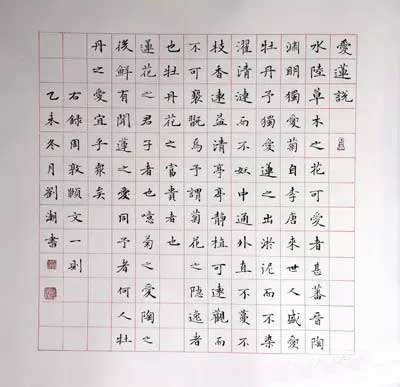 愛蓮説
水陸草木之花可愛者甚蕃晉陶
淵明獨愛菊自李唐來世人盛愛
牡丹予獨愛蓮之出淤泥而不染
濯清漣而不妖中通外直不蔓不
枝香遠益清亭亭静植可遠觀而
不可褻翫焉予謂菊花之隱逸者
也牡丹花之富貴者也
蓮花之君子者也噫菊之愛陶之
後鮮有聞蓮之愛同予者何人牡
丹之愛宜乎衆矣
右錄周敦頤文一則
乙未冬月劉書